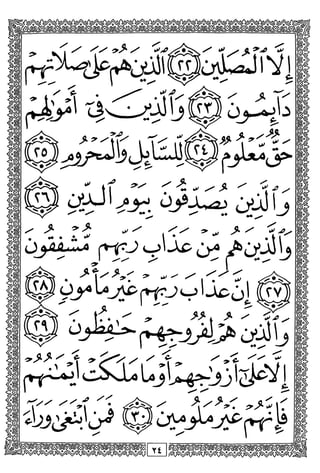 إِلَّا ٱلْمُصَلِّينَ ٢٢ ٱلَّذِينَ هُمْ عَلَىٰ صَلَاتِهِمْ
دَآئِمُونَ ٢٣ وَٱلَّذِينَ فِىٓ أَمْوَٰلِهِمْ
حَقٌّ مَّعْلُومٌ ٢٤ لِّلسَّآئِلِ وَٱلْمَحْرُومِ ٢٥
وَٱلَّذِينَ يُصَدِّقُونَ بِيَوْمِ ٱلدِّينِ ٢٦
وَٱلَّذِينَ هُم مِّنْ عَذَابِ رَبِّهِم مُّشْفِقُونَ
٢٧ إِنَّ عَذَابَ رَبِّهِمْ غَيْرُ مَأْمُونٍ ٢٨
وَٱلَّذِينَ هُمْ لِفُرُوجِهِمْ حَٰفِظُونَ ٢٩
إِلَّا عَلَىٰٓ أَزْوَٰجِهِمْ أَوْ مَا مَلَكَتْ أَيْمَٰنُهُمْ
فَإِنَّهُمْ غَيْرُ مَلُومِينَ ٣٠ فَمَنِ ٱبْتَغَىٰ وَرَآءَ
٢٤